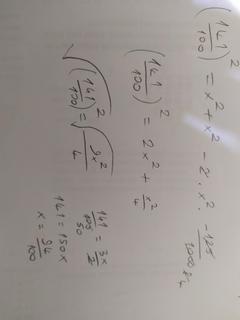 (141/100)² = x² + x² - 2·x²· -125/1000 8 4
(141/100)² = 2x² + x²/4
√(141/100)² = √9x²/4
141/100 50 = 3x/2
141 = 150x
x = 94/100